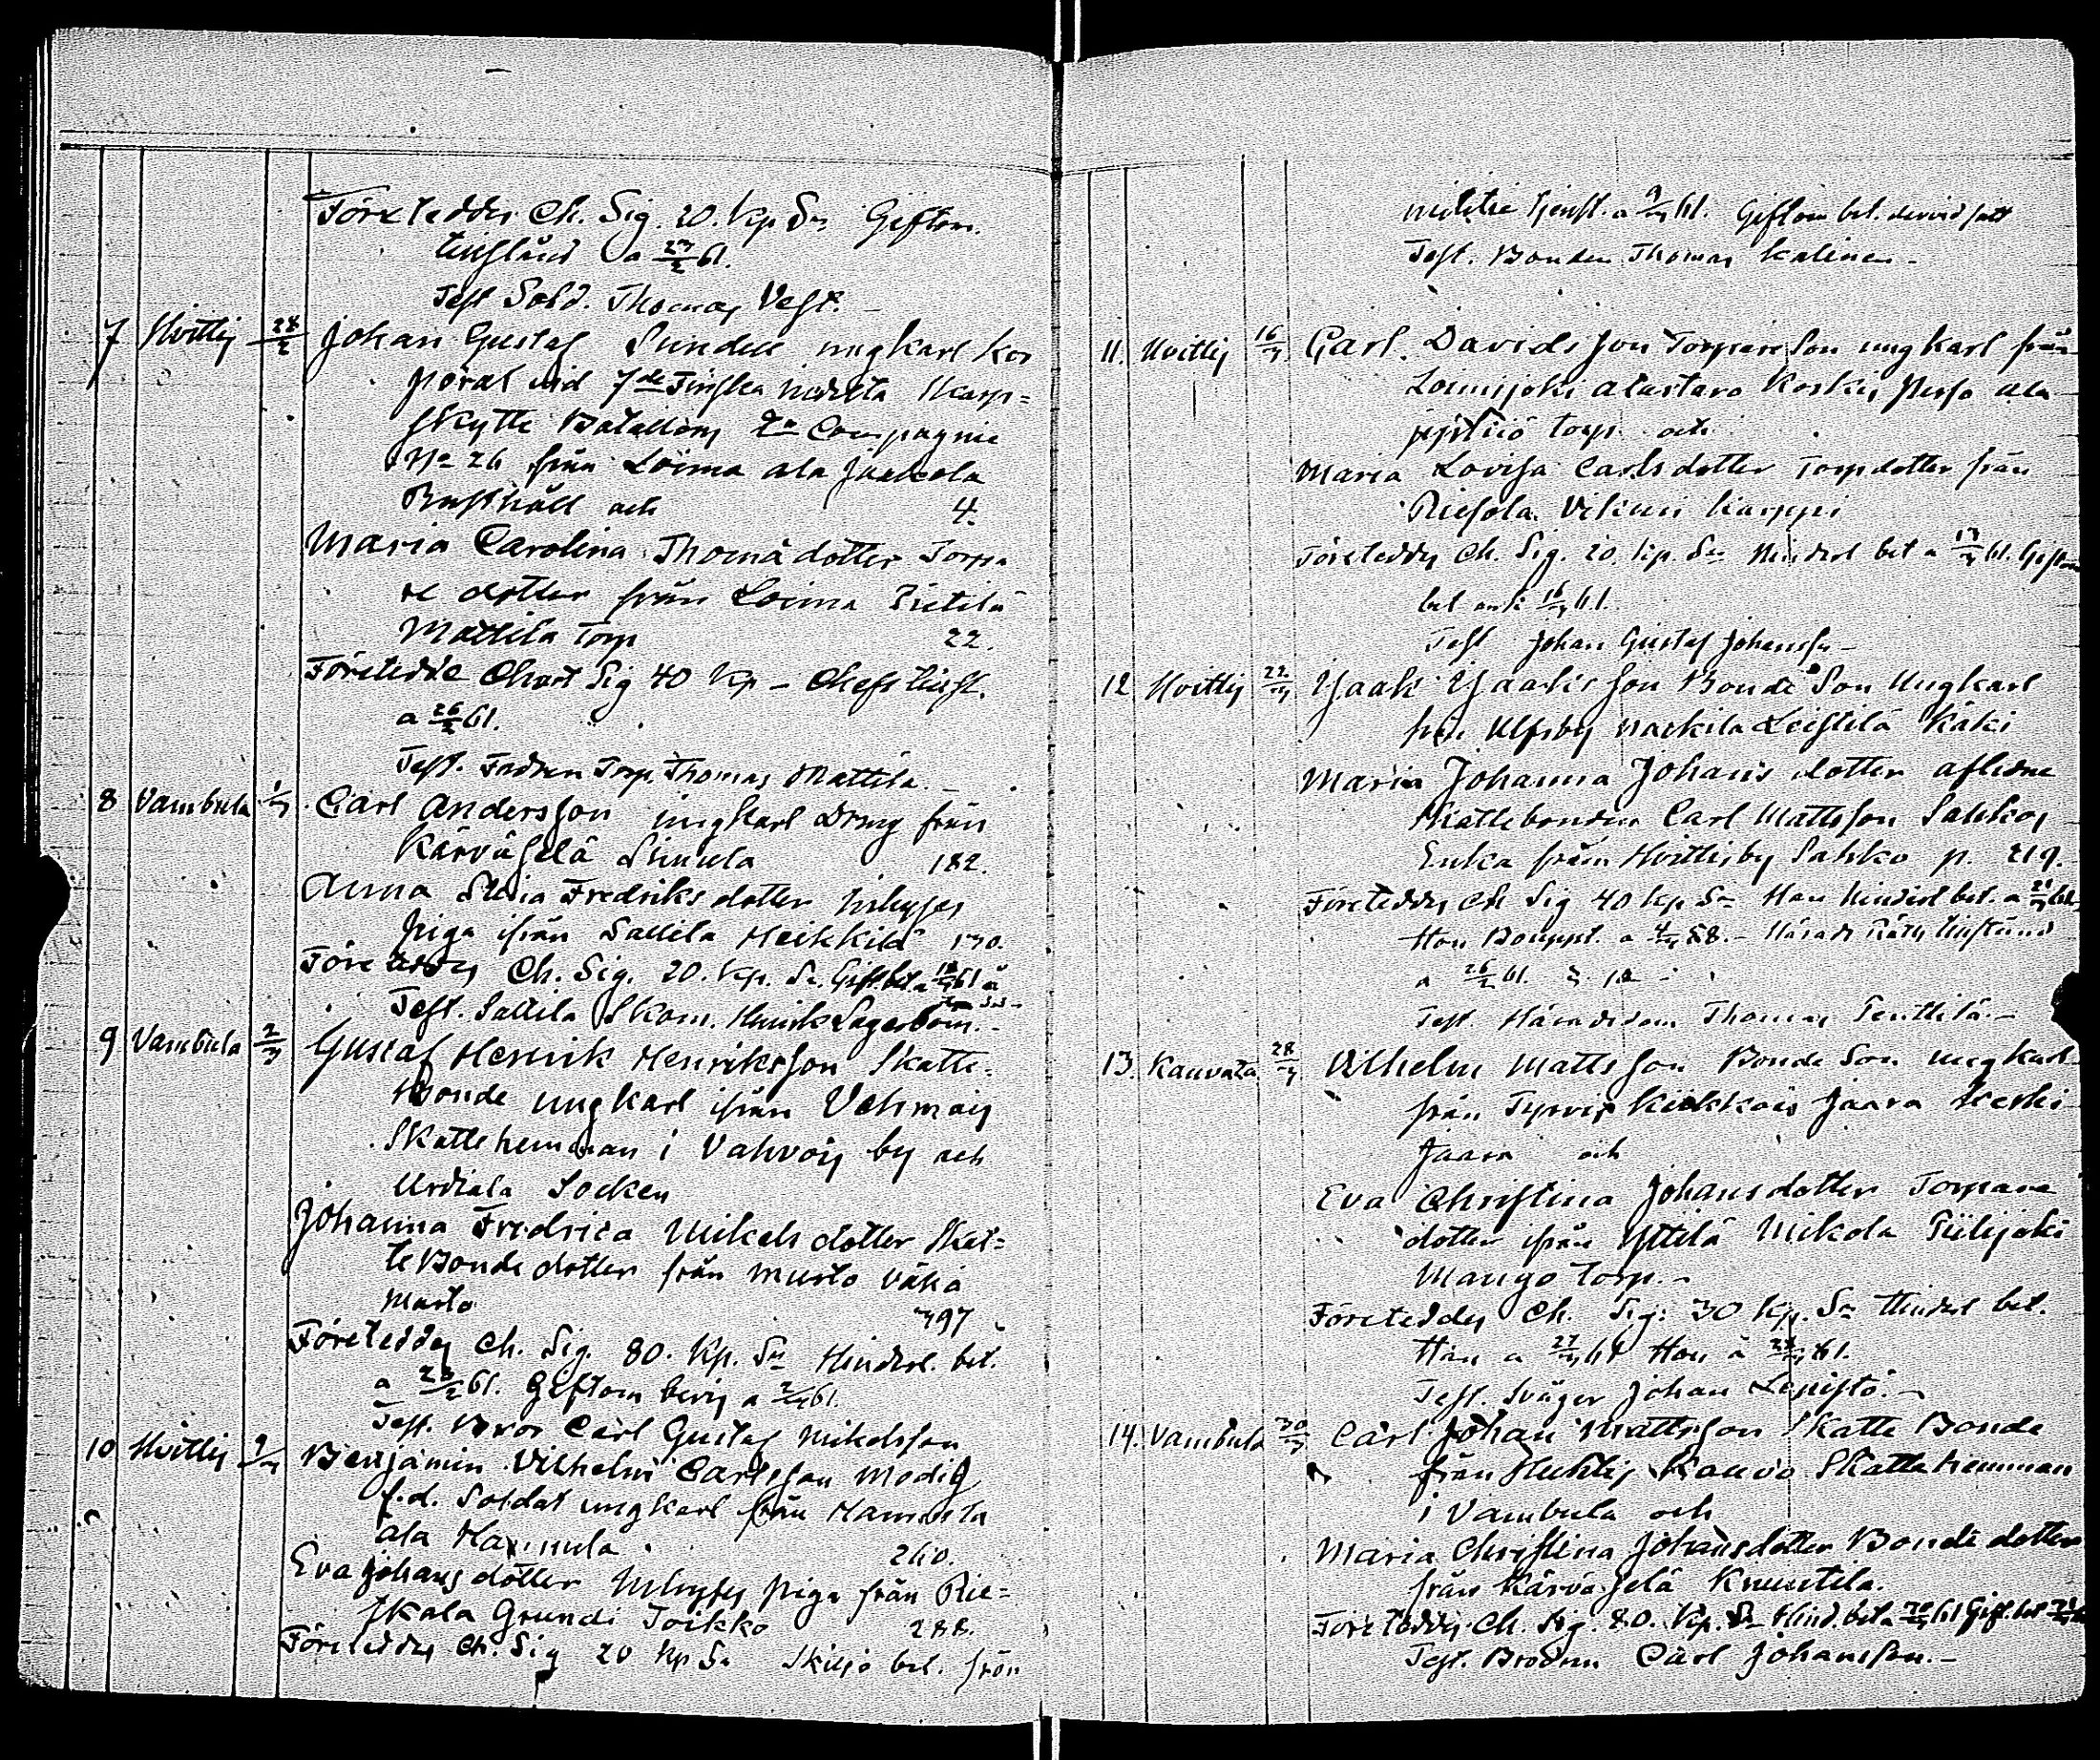 Företeddes Ch. Sig. 20. Kp Sr Giftom.
tillstånd a 27/2 61.
Test Sold. Thomas Vest.
7 Hvittis 28/2 Johan Gustaf Sundell ungkarl Kor
poral vid 7de Finska indelta Skarp=
skytte Bataillons 2a Compagnie
No 26 från Loima ala Jaakola
Rusthåll och 4.
Maria Carolina Thomä dotter Torpa
re dotter från Loima Pietilä
Mattila Torp 22.
Företedde Chart Sig 40 Kp - Chefs tillst.
a 26/2 61.
Test. Fadren Torp. Thomas Mattila.
8 Vambula 1/3 Carl Andersson ungkarl Dreng från
Kärväselä Simula 182.
Anna Stina Fredriks dotter Inhyses
piga ifrån Sallila Heikkilä 130.
Företeddes Ch. Sig. 20. Kp. Sr. Gift. bet. a 61
Test. Sallila Skom. Henrik Lagerbom.
9 Vambula 2/3 Gustaf Henrik Henriksson Skatte-
Bonde ungkarl ifrån Vehmais
Skattehemman i Vahvois by och
Urdiala Socken
Johanna Fredrica Mikels dotter Skat=
te Bonde dotter från Murto Vähä
Murto 397
Företeddes Ch. Sig. 80. Kp. Sr Hindersl. bet.
a 28/2 61. Giftom bevis a 2/3 61.
Test. Bror Carl Gustaf Mikelsson
10 Hvittis 9/3 Benjamin Vilhelm Carlsson Modig
f.d. Soldat ungkarl från Hannula
ala Hannula 260.
Eva Johans dotter Inhyses piga från Rie=
skala Grundi Toikko 288.
Företeddes Ch. Sig 20 Kp Sr Skiljo bet. från
militie tjenst. a 9/3 61. Giftom bet. dervid satt
Test. Bonden Thomas Kalinen -
11. Hvittis 16/3 Carl Davidsson Torpare Son ungkarl från
Loimijoki Alastaro Koskis
Torp och
Maria Lovisa Carls dotter Torp dotter från
Riesola Vikuri Karppi
Företeddes Ch. Sig. 20. Kp. Sr Hindersl bet a 13/3 61. Giftom
bet 16/3 61.
Test Johan Gustaf Johansson -
12 Hvittis 22/3 Isaak Isaaksson Bonde Son Ungkarl
från Ulfsby Leistilä Käki
Maria Johanna Johans dotter aflidne
Skattebonden Carl Mattsson Sahkos
Enka från Hvittisby Sahko p. 219.
Företeddes Ch Sig 40 Kp Sr Han Hindersl bet. a 21/3 61
Hon Bouppt. a 58. - Härads Räts tillstånd
a 26/2 61.
Test. Häradsdom Thomas Penttilä -
13. Kauvatsa 28/3 Vilhelm Mattsson Bonde Son ungkarl
från Tyrvis Kiikkois Jaara Keski
Jaara och
Eva Christina Johans dotter Torpare
dotter ifrån Yttilä Mikola Piilijoki
Torp. -
Företeddes Ch. Sig: 30 Kp. Sr Hindersl bet.
Han a 27/3 61 Hon a 61.
Test. Svåger Johan Lepistö. -
14. Vambula 30/3 Carl Johan Mattsson Skatte Bonde
från Huhtis Kauvo Skattehemman
i Vambula och
Maria Christina Johansdotter Bonde dotter
från Kärväselä Knuutila.
Företeddes Ch. Sig. 80. Kp. Sr Hind. bet a 61 Gift. bet
Test. Brodren Carl Johansson. -